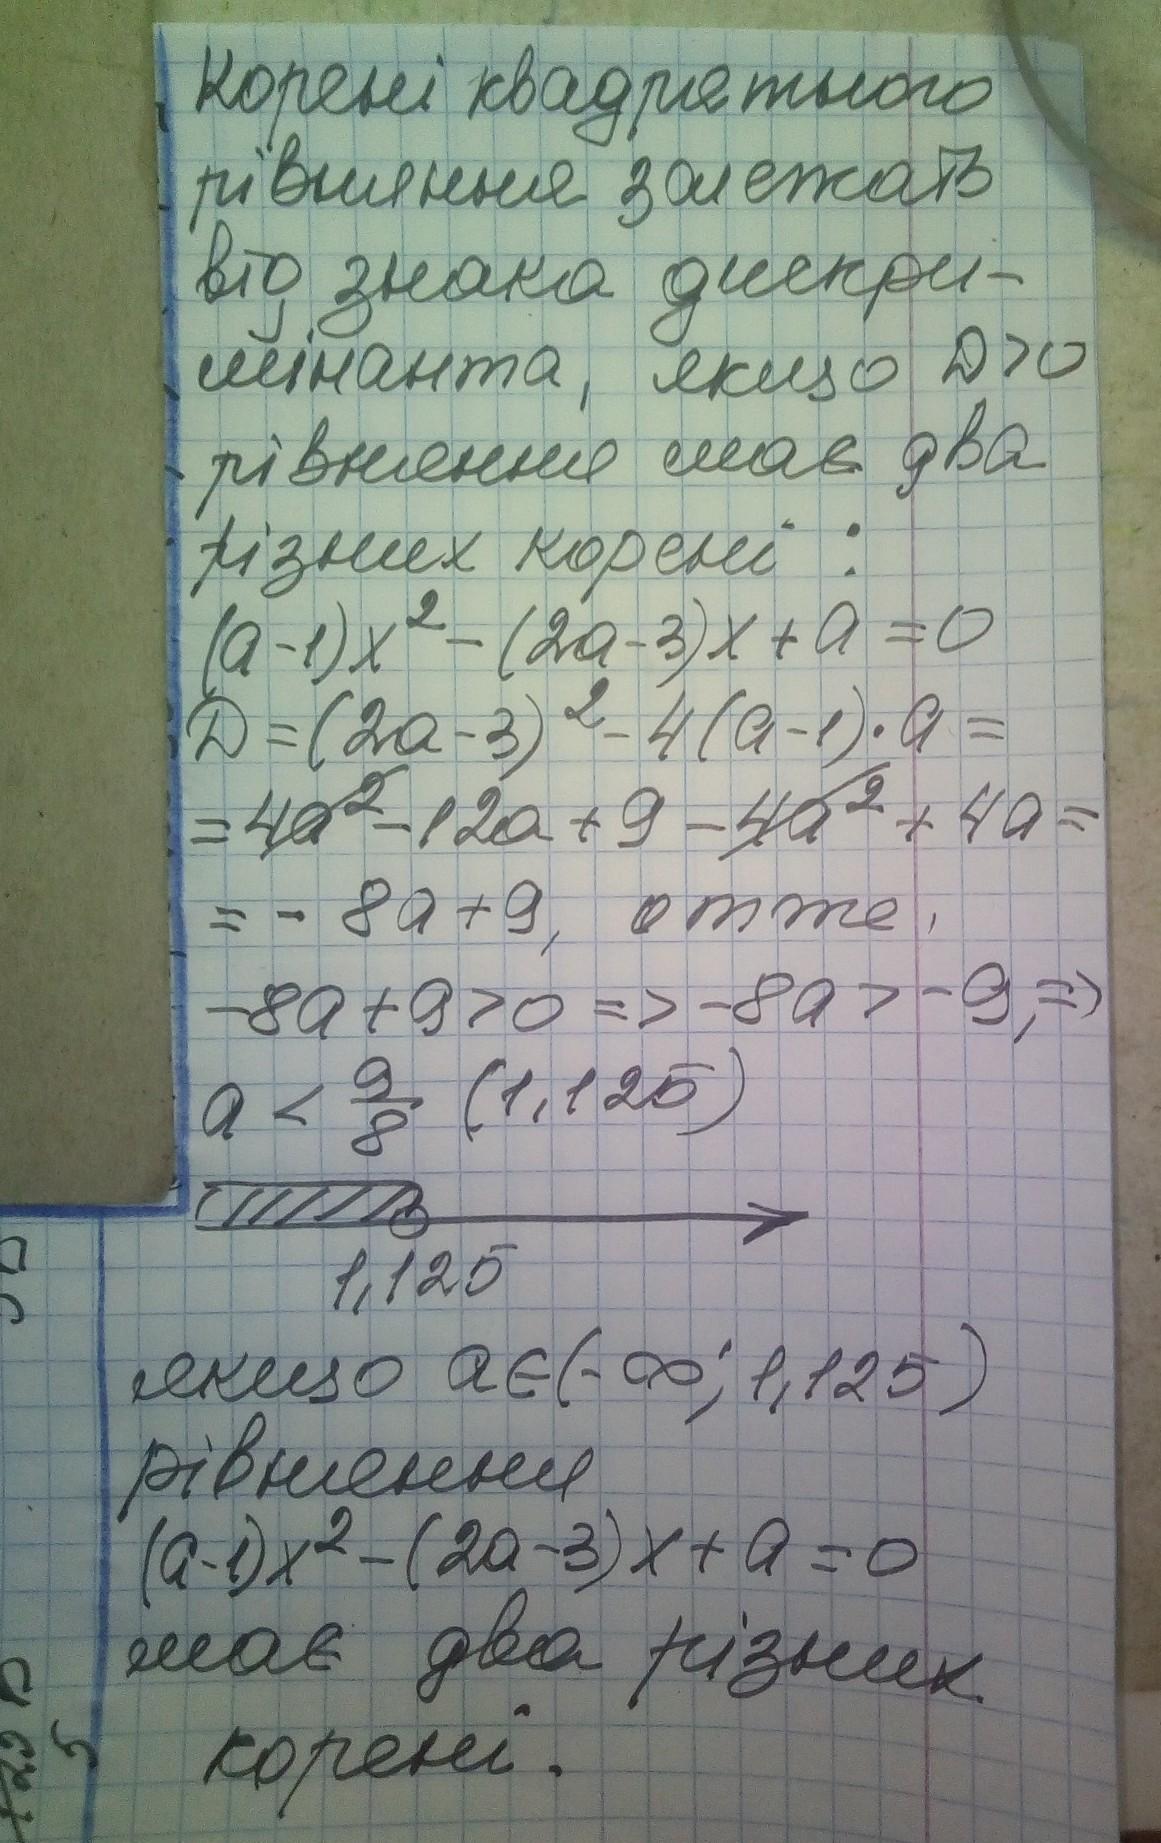 Корені квадратного
рівняння залежать
від знака дискри-
мінанта, якщо D>0
рівняння має два
різних корені :
(a-1)x² - (2a-3)x + a = 0
D = (2a-3)² - 4(a-1)·a =
= 4a² - 12a + 9 - 4a² + 4a =
= - 8a + 9, отже,
-8a + 9 > 0 => -8a > -9, =>
a < 9/8 (1,125)
1,125
якщо a∈(-∞; 1,125)
рівняння
(a-1)x² - (2a-3)x + a = 0
має два різних
корені.